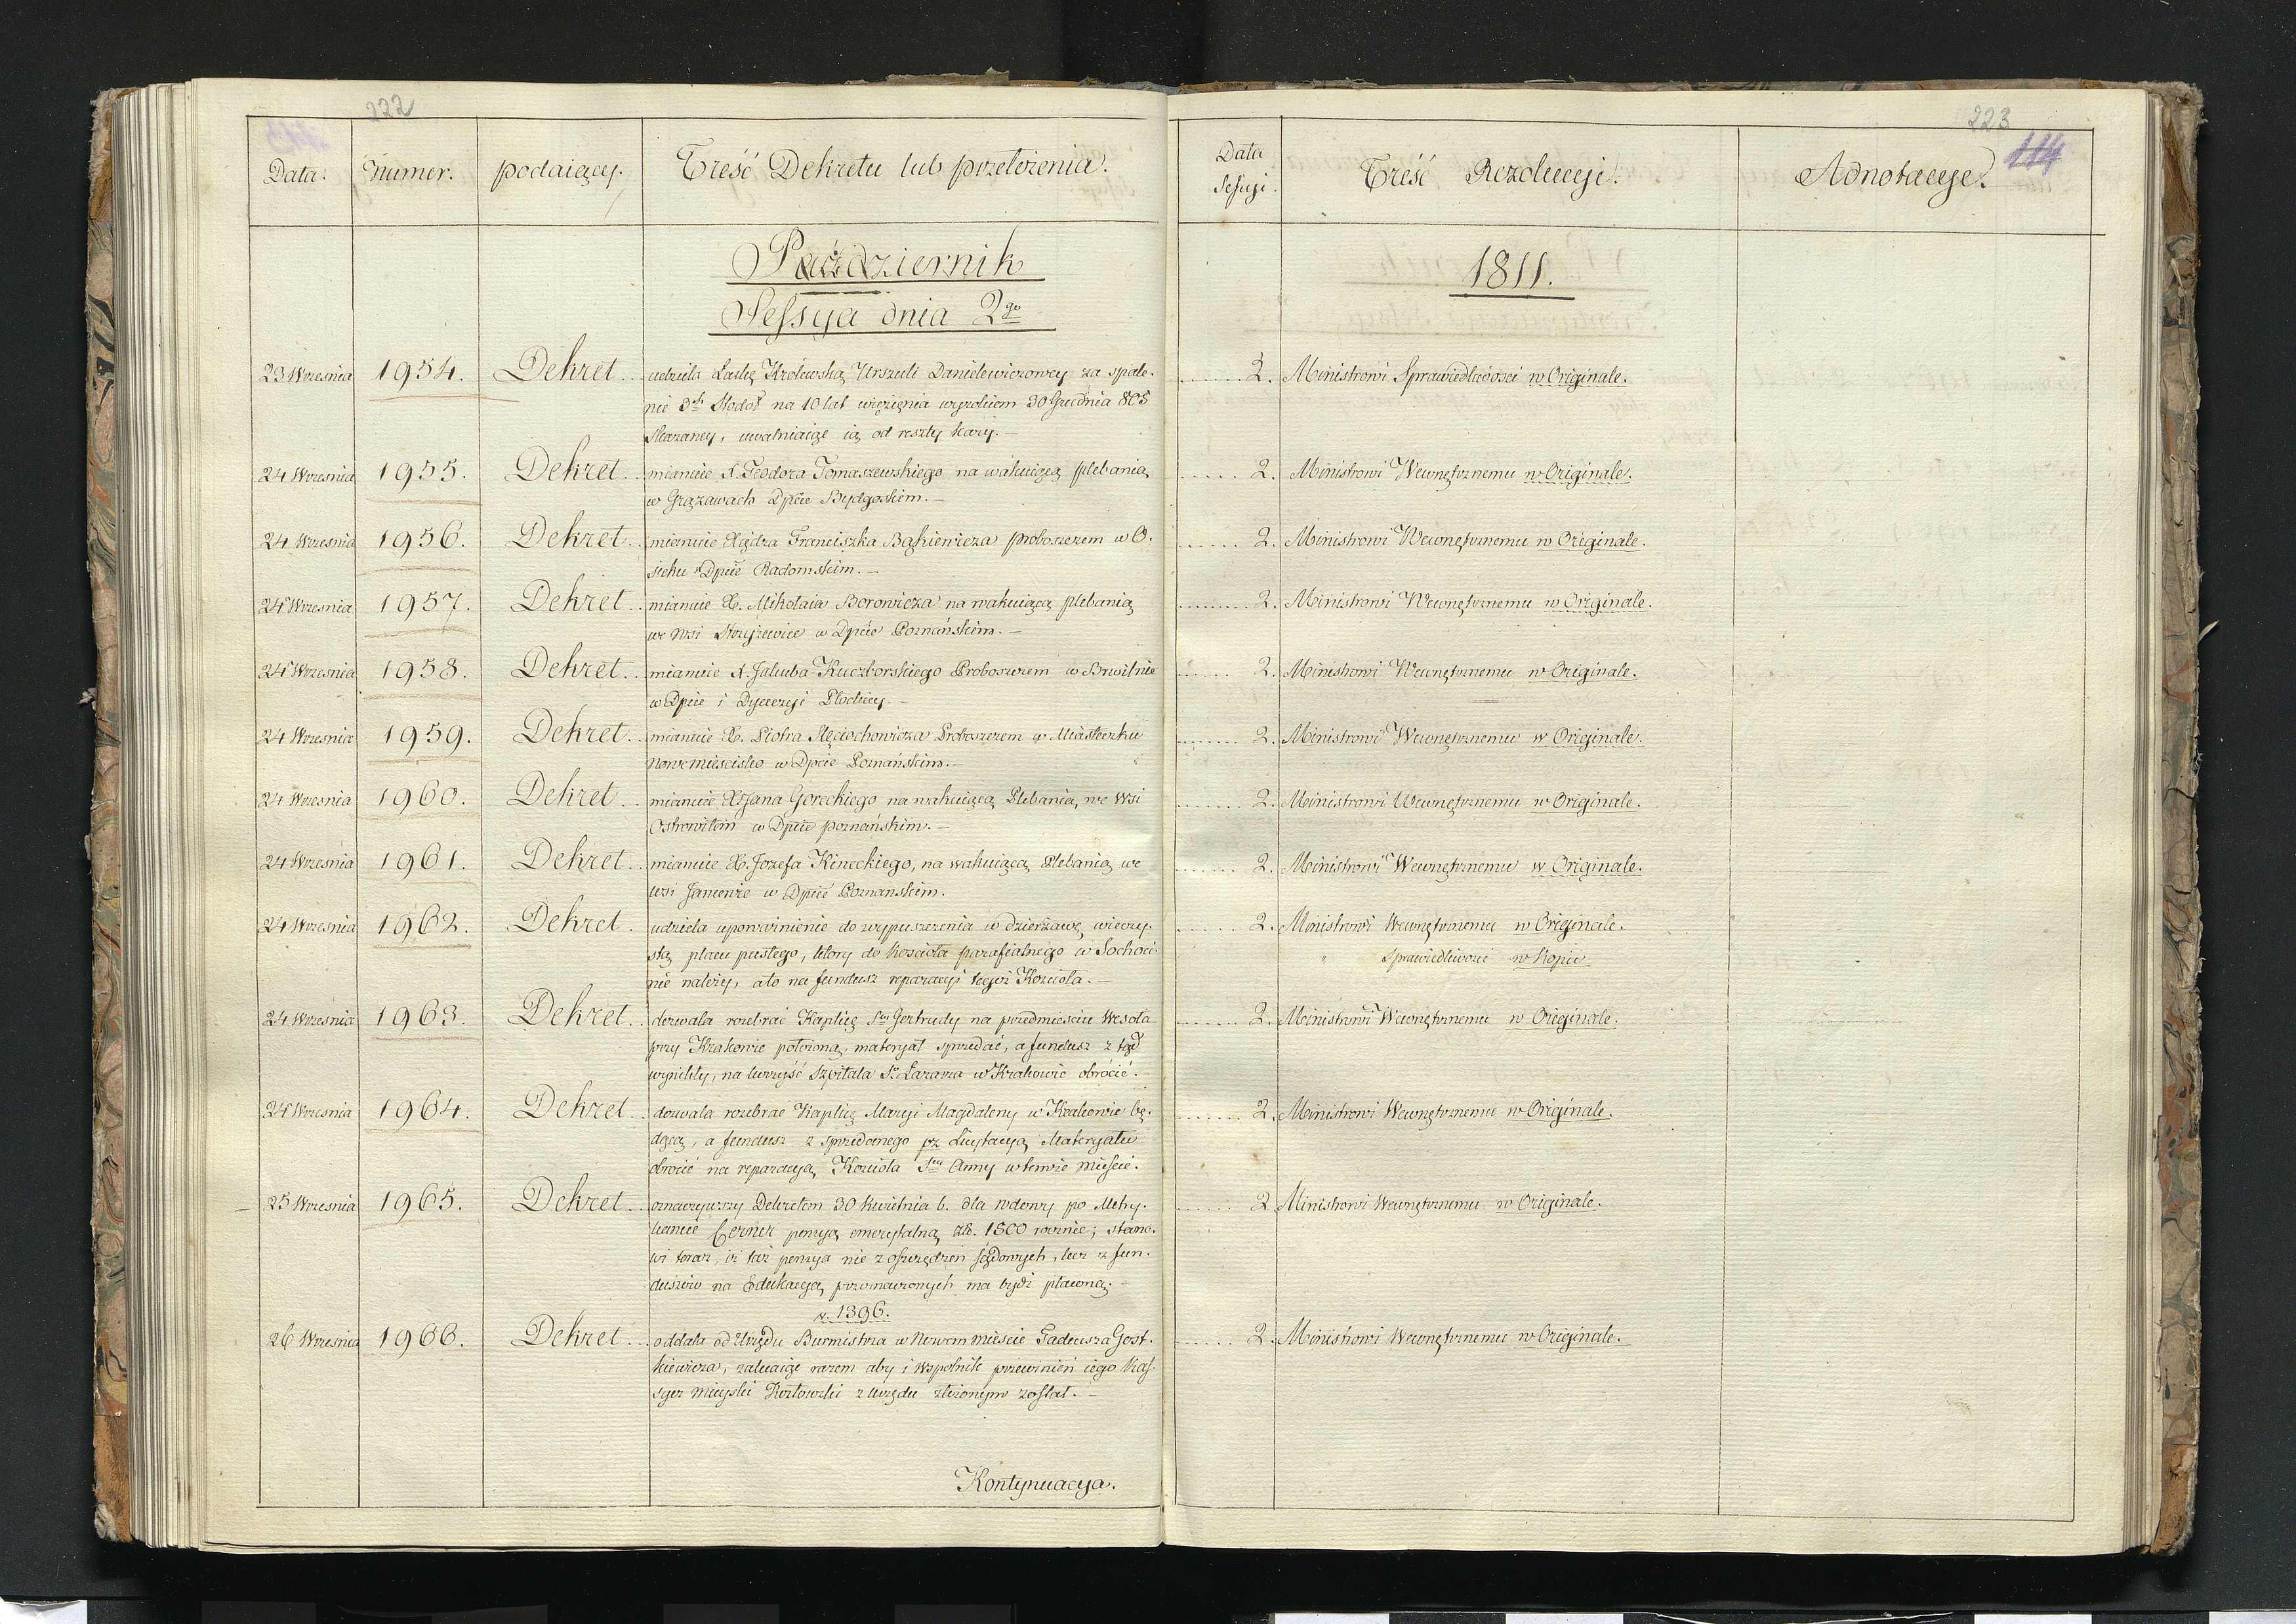 222
223
114
Data. Numer. podaiący. Treść Dekretu lub przełożenia. Data Sessyi. Treść Rezolucyi. Adnotacye.
Październik 1811.
Sessya dnia 2go
23 Wrzesnia 1954. Dekret udziela Łaskę Królewską Urszuli Danielewiczowey za spale- 2. Ministrowi Sprawiedliwosci w Originale.
nie 3ch Stodoł na 10 lat więzięnia wyrokiem 30 Grudnia 805
skazaney, uwalniaiąc ią od reszty kary.
24 Wrzesnia 1955. Dekret mianuie X. Teodora Tomaszewskiego na wakuiącą plebanią 2. Ministrowi Wewnętrznemu w Originale.
w Grązawach Dpcie Bydgoskiem.
24 Wrzesnia 1956. Dekret mianuie Xiędza Franciszka Bąkiewicza proboszczem w O- 2. Ministrowi Wewnętrznemu w Originale.
sieku w Dpcie Radomskim.
24 Wrzesnia 1957. Dekret mianuie X. Mikołaia Borowicza na wakuiącą plebanią 2. Ministrowi Wewnętrznemu w Originale.
we Wsi Stryżewice w Dpcie Poznańskim.
24 Wrzesnia 1958. Dekret mianuie X. Jakuba Kuczborskiego Proboszczem w Brwilnie 2. Ministrowi Wewnętrznemu w Originale.
w Dpcie i Dyecezyi Płockiey
24 Wrzesnia 1959. Dekret mianuie X. Piotra Męciochowicza Proboszczem w Miasteczku 2. Ministrowi Wewnętrznemu w Originale.
Nowemieścisko w Dpcie Poznańskim.
24 Wrzesnia 1960. Dekret mianuie X. Jana Goreckiego na wakuiącą Plebanią we Wsi 2. Ministrowi Wewnętrznemu w Originale.
Ostrowitem w Dpcie poznańskim.
24 Wrzesnia 1961. Dekret mianuie X. Jozefa Kineckiego, na wakuiącą Plebanią we 2. Ministrowi Wewnętrznemu w Originale.
wsi Janiewie w Dpcie Poznanskim.
24 Wrzesnia 1962. Dekret udziela upoważnienie do wypuszczenia w dzierżawę wieczy- 2. Ministrowi Wewnętrznemu w Originale.
stą placu pustego, ktory do Kościoła parafialnego w Sochoci- " Sprawiedliwości w Kopii
nie należy, a to na fundusz reparacyi tegoż Kościoła.
24 Wrzesnia 1963. Dekret dozwala rozebrać Kaplicę Stey Gertrudy na przedmiesciu Wesoła 2. Ministrowi Wewnętrznemu w Originale.
przy Krakowie położoną, materyał sprzedać, a fundusz z tąd
wynikły, na korzyść Szpitala Sgo Łazarza w Krakowie obrócić.
24 Wrzesnia 1964. Dekret dozwala rozebrać Kaplicę Maryi Magdaleny w Krakowie bę- 2. Ministrowi Wewnętrznemu w Originale.
dącą, a fundusz z sprzedanego pz Licytacyą Materyału
obrócić na reparacyą Kościoła Stey Anny w temże mieście.
25 Wrzesnia 1965. Dekret oznaczywszy Dekretem 30 Kwietnia b. dla wdowy po Metry- 2. Ministrowi Wewnętrznemu w Originale.
kancie Cerner pensyą emerytalną zł. 1500 rocznie; stano-
wi teraz, iż taż pensya nie z oszczędzen sądowych, lecz z fun-
duszów na Edukacyą przeznaczonych ma bydź płaconą.
v. 1396.
26 Wrzesnia 1966. Dekret oddala od Urzędu Burmistrza w Nowem mieście Tadeusza Gost- 2. Ministrowi Wewnętrznemu w Originale.
kiewicza, zalecaiąc razem aby i Wspolnik przewinień iego Kas-
syer Mieyski Kozłowski z urzędu złożonym został.
Kontynuacya.